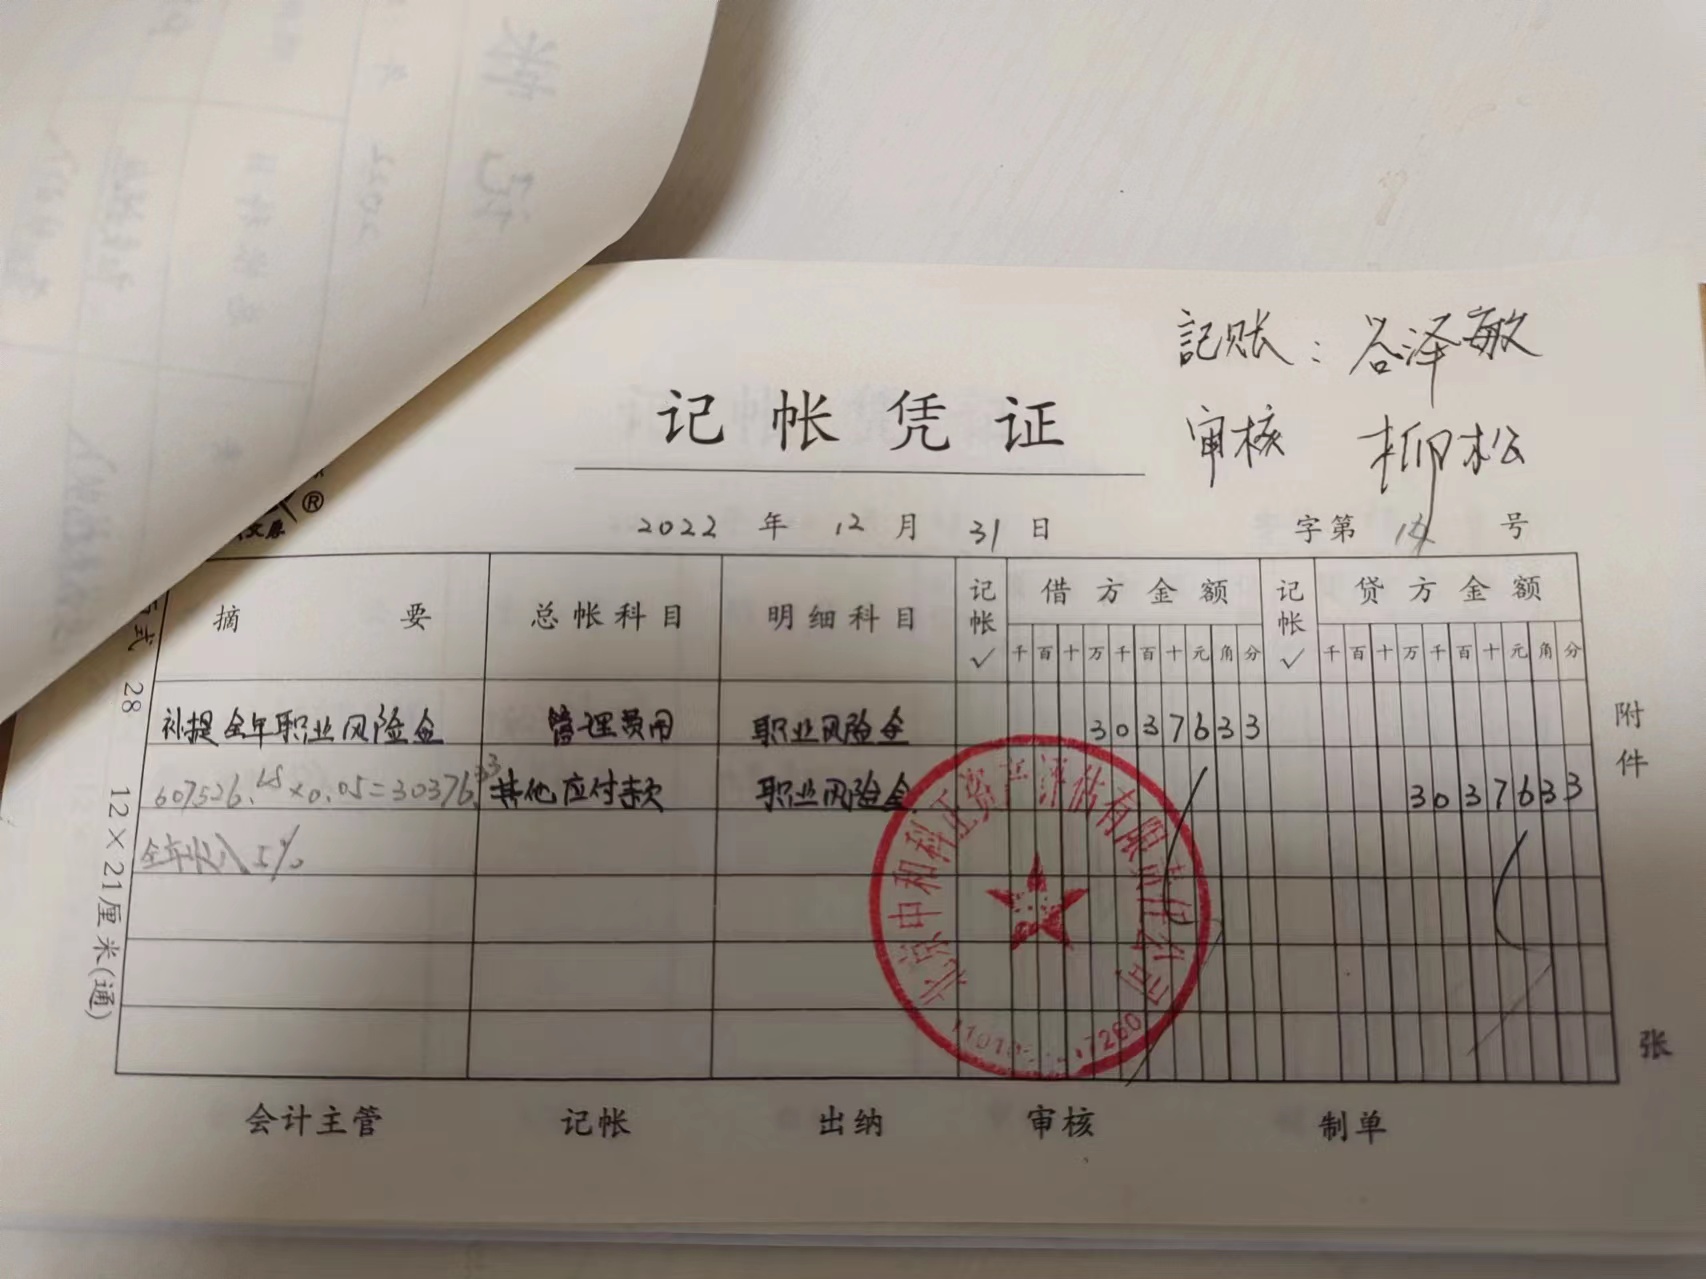 記账：谷泽敏
审核 柳松
记帐凭证
®
2022 年 12 月 31 日 字第 号
摘要 总帐科目 明细科目 记帐√ 借方金额 记帐√ 贷方金额
千百十万千百十元角分 千百十万千百十元角分
补提全年职业风险金 管理费用 职业风险金 3037633
607526.65×0.05=30376.33 其他应付款 职业风险金 3037633
全年收入5%
附件
张
式 28 12×21厘米(通)
北京中和科正资产评估有限责任公司
会计主管 记帐 出纳 审核 制单